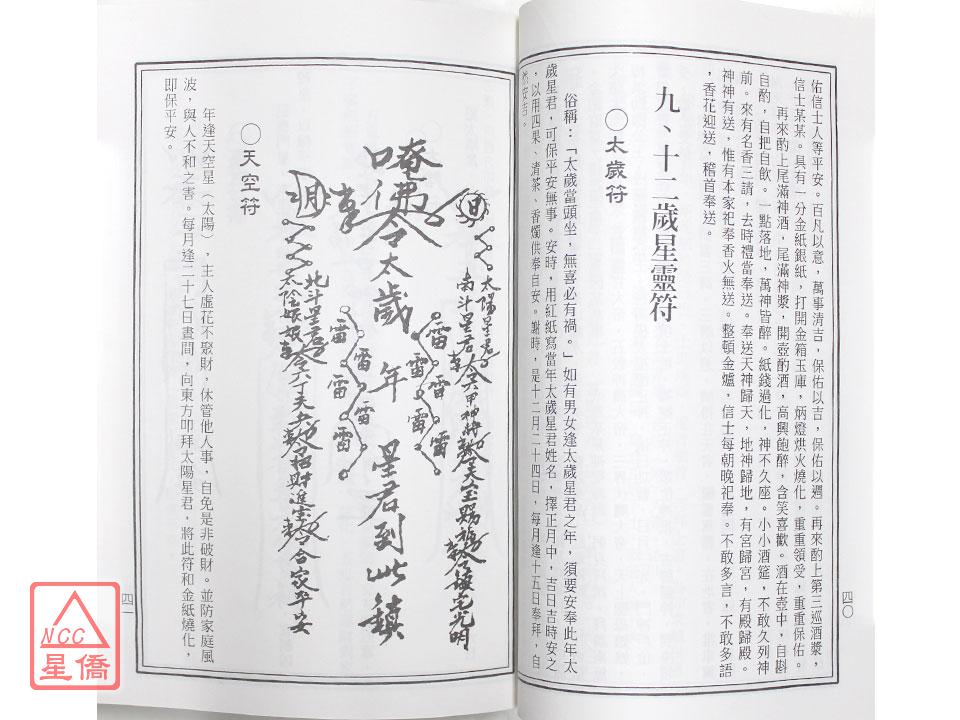 佑信士人等平安。百凡以意，萬事清吉，保佑以吉，保佑以週。再來酌上第三巡酒漿，
信士某某。具有一分金紙銀紙，打開金箱玉庫，炳燈烘火燒化，重重領受，重重保佑。
再來酌上尾滿神酒，尾滿神漿，開壺酌酒，高興飽醉，含笑喜歡。酒在壺中，自斟
自酌，自把自飲。一點落地，萬神皆醉。紙錢過化，神不久座。小小酒筵，不敢久列神
前。來有名香三請，去時禮當奉送。奉送天神歸天，地神歸地，有宮歸宮，有殿歸殿。
神神有送，惟有本家祀奉香火無送。整頓金爐，信士每朝晚祀奉。不敢多言，不敢多語
，香花迎送，稽首奉送。
九、十二歲星靈符
○太歲符
俗稱：「太歲當頭坐，無喜必有禍。」如有男女逢太歲星君之年，須要安奉此年太
歲星君，可保平安無事。安時，用紅紙寫當年太歲星君姓名，擇正月中，吉日吉時安之
，以用四果、清茶、香燭供奉自安。謝時，是十二月二十四日，每月逢十五日奉拜，自
然安吉。
四〇
太陽星君
南斗星君
六甲神將
天官賜福
鎮宅光明
唵佛令太歲年星君到此鎮
雷雷雷雷雷
雷雷雷雷雷
北斗星君
太陰娘娘
六丁
招財進寶
合家平安
○天空符
年逢天空星（太陽），主人虛花不聚財，休管他人事，自免是非破財。並防家庭風
波，與人不和之害。每月逢二十七日晝間，向東方叩拜太陽星君，將此符和金紙燒化，
即保平安。
四一
NCC
星僑